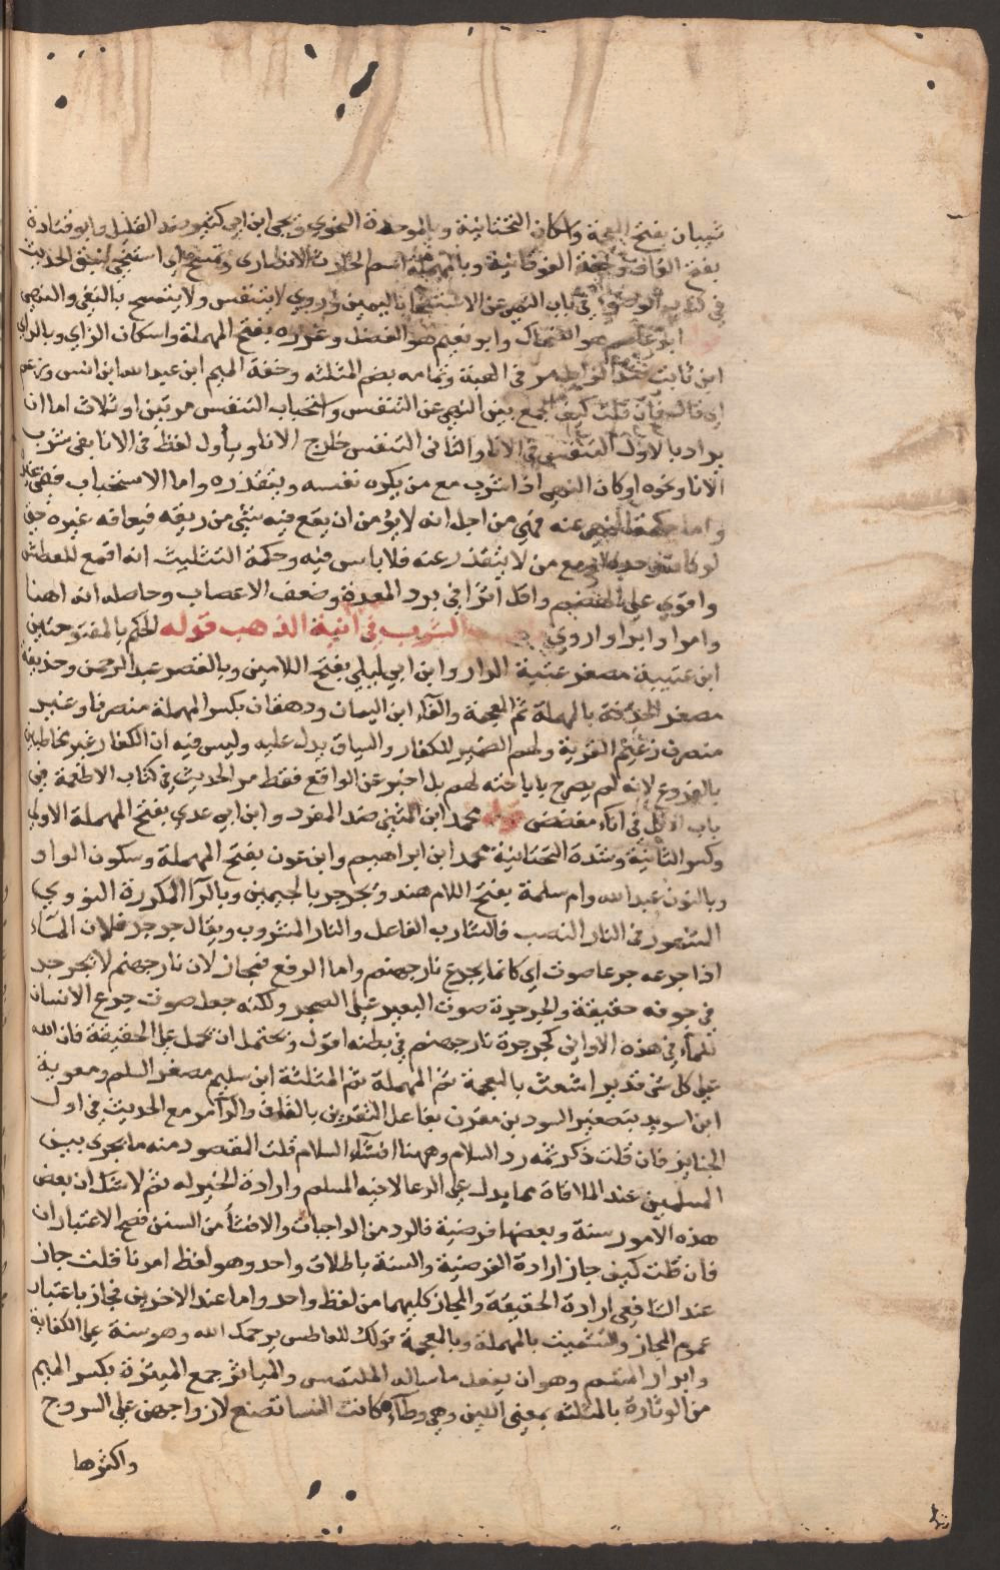 شيبان بفتح المعجمة واسكان التحتانية وبالموحدة النحوي ويحيى ابن ابي كثير ضد القليل وابو قتادة
بفتح القاف وخفة الفوقانية وبالمهملة اسم الحارث الانصاري وتمسح اي استنجى سبق الحديث
في كتاب الوضوء في باب النهي عن الاستنجا باليمين وروي لا يتنفس ولا يتمسح بالنفي والنهي
ابو عاصم هو الضحاك وابو نعيم هو الفضل وعزره بفتح المهملة واسكان الزاي وبالراي
ابن ثابت في الهبة وثمامه بضم المثلثه وخفة الميم ابن عبد الله ابن انس وزعم
اي قال فان قلت كيف جمع بين النهي عن التنفس واستحباب التنفس مرتين او ثلاث اما ان
يراد بالاول التنفس في الانا والثاني التنفس خارج الانا ويأول لفظ في الانا بفي شرب
الانا ونحوه او كان النهي اذا شرب مع من يكره نفسه ويتقذره واما الاستحباب فهي
واما حكمة النهي عنه فهي من اجل انه لا يؤمن ان يقع فيه شيء من ريقه فيعافه غيره حتى
لو كان مع من لا يتقذر عنه فلا باس فيه وحكمة التثليث انه اقمع للعطش
واقوي على الهضم واقل اثرا في برد المعدة وضعف الاعصاب وحاصله انه اهنا
وامرا وابرا واروي الشرب في انية الذهب قوله الحكم بالمفتوحتين
ابن عتيبة مصغر عتبة الدار وابن ابي ليلي بفتح اللامين وبالقصر عبد الرحمن وحذيفة
مصغر الحذفة بالمهملة ثم المعجمة والفاء ابن اليمان ودهقان بكسر المهملة منصرفا وغير
منصرف زعيم القرية ولهم الضمير للكفار والسياق يدل عليه وليس فيه ان الكفار غير مخاطبين
بالفروع لانه لم يصرح باباحته لهم بل اخبر عن الواقع فقط مر الحديث في كتاب الاطعمة في
باب الاكل في اناء مفضض قوله محمد ابن المثنى ضد المفرد وابن ابي عدي بفتح المهملة الاولى
وكسر الثانية وشدة التحتانية محمد ابن ابراهيم وابن عون بفتح المهملة وسكون الواو
وبالنون عبد الله وام سلمة بفتح اللام هند ويجرجر بالجيمين وبالرا المكررة النووي
المشهور في النار النصب فالشارب الفاعل والنار المشروب ويقال جرجر فلان الماء
اذا جرعه جرعا صوت اي كانما يجرع نار جهنم واما الرفع فمجاز لان نار جهنم لا تجرجر
في جوفه حقيقة والجرجرة صوت البعير على الضجر ولكنه جعل صوت جرع الانسان
للماء في هذه الاواني كجرجرة نار جهنم في بطنه اقول ويحتمل ان تحمل على الحقيقة فان الله
على كل شي قدير اشعث بالمعجمة ثم المهملة ثم المثلثة ابن سليم مصغر السلم ومعوية
ابن السويد بتصغير السود بن مقرن بفاعل التقرين بالقاف والرا مر مع الحديث في اول
الجنايز فان قلت ذكر ثمه رد السلام وههنا افشاء السلام قلت المقصود منه ما يجرى بين
المسلمين عند الملاقاة مما يدل على الدعا لاخيه المسلم وارادة الخير له ثم لا شك ان بعض
هذه الامور سنة وبعضها فرضية فالرد من الواجبات والافشا من السنن فصح الاعتباران
فان قلت كيف جاز ارادة الفرضية والسنة باطلاق واحد وهو لفظ امرنا قلت جاز
عند الشافعي ارادة الحقيقة والمجاز كليهما من لفظ واحد واما عند الاخرين فجاز باعتبار
عموم المجاز والتشميت بالمهملة وبالمعجمة قولك للعاطس يرحمك الله وهو سنة على الكفاية
وابرار المقسم وهو ان يفعل ما ساله الملتمس والمياثر جمع الميثرة بكسر الميم
من الوثارة بالمثلثه بمعنى اللين وهي وطاء كانت النسا تصنع لازواجهن على السروج
واكثرها